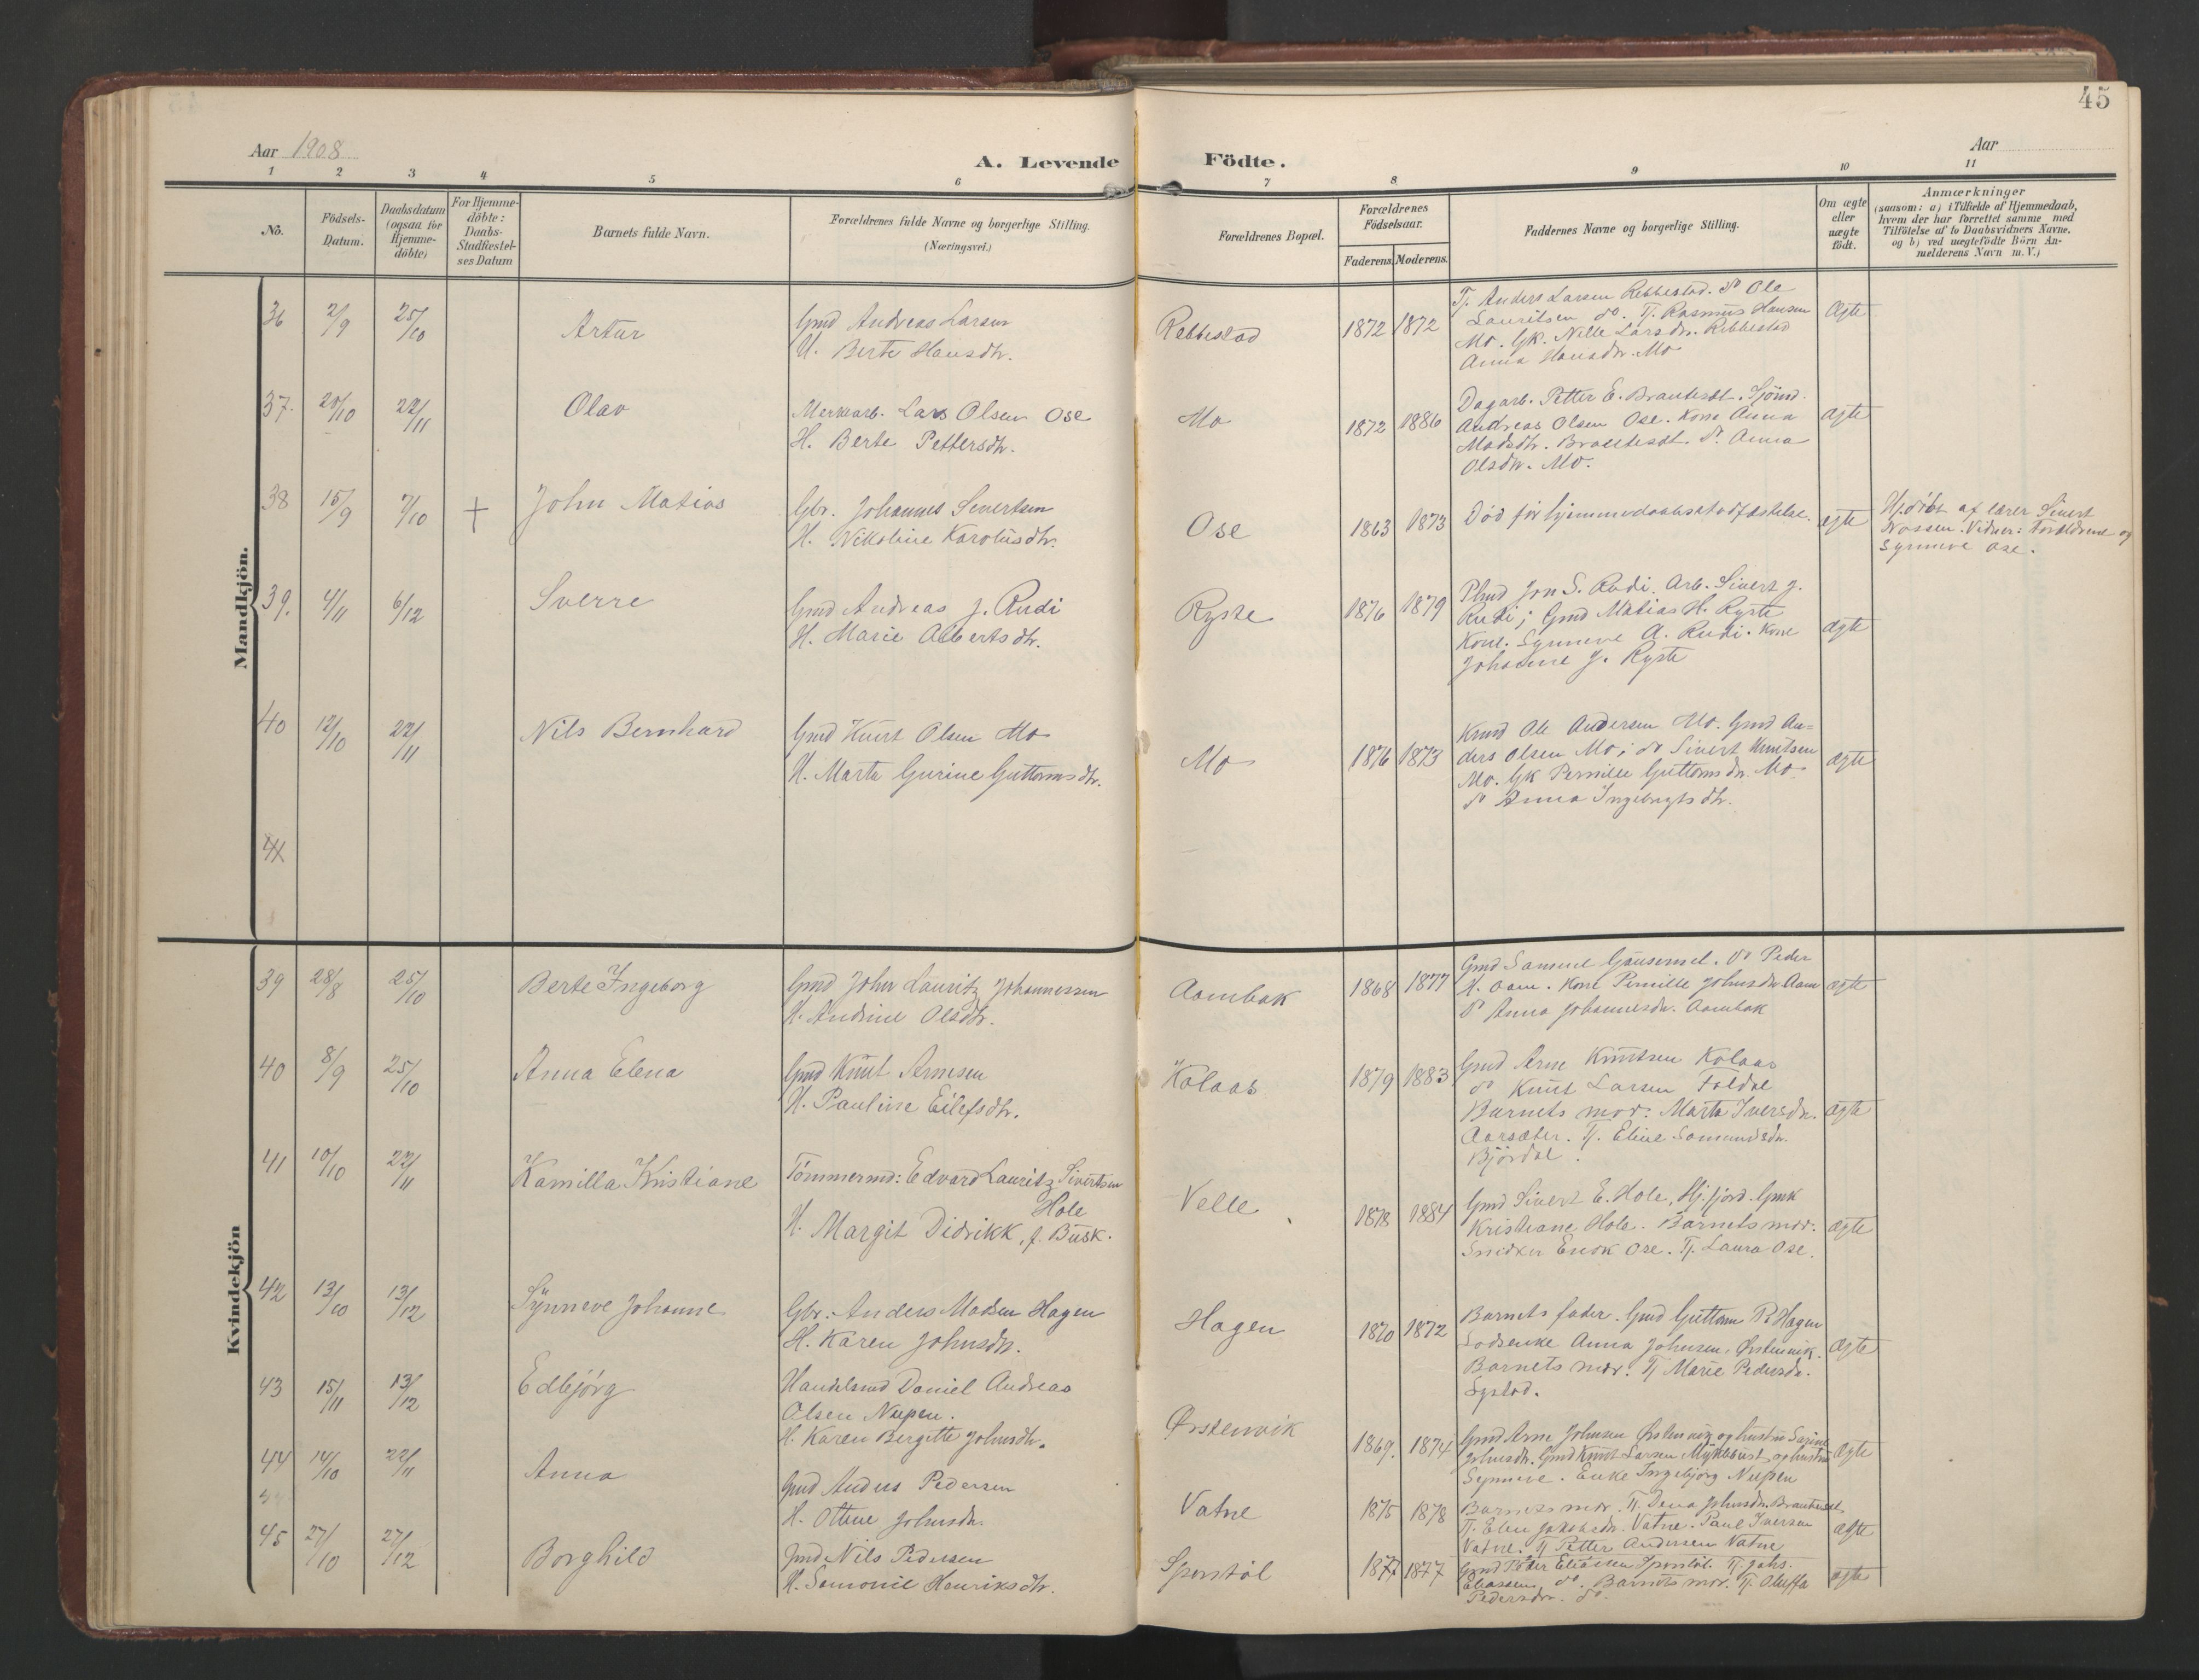 45
Aar 1908
A. Levende Födte.
Aar
1 2 3 4 5 6 7 8 9 10 11
No.
Födsels-
Datum.
Daabsdatum
(ogsaa for
Hjemme-
döbte)
For Hjemme-
döbte:
Daabs-
Stadfæstel-
ses Datum
Barnets fulde Navn.
Forældrenes fulde Navne og borgerlige Stilling.
(Næringsvei.)
Forældrenes Bopæl.
Forældrenes
Födselsaar.
Faderens. Moderens.
Faddernes Navne og borgerlige Stilling.
Om ægte
eller
uægte
födt.
Anmærkninger
(saasom: a) i Tilfælde af Hjemmedaab,
hvem der har forrettet samme, med
Tilföielse af to Daabsvidners Navne.
og b) ved uægtefödte Börn An-
melderens Navn m. V.)
Mandkjön.
36 2/9 25/10 Artur
Gmd Andreas Larsen
H. Berte Hansdtr.
Rebbestad 1872 1872
Tj. Anders Larsen Rebbestad. do Ole
Lauritsen do. Tj. Rasmus Hansen
Mo. Gk. Nelle Larsdr. Rebbestad
Anna Hansdr. Mo
ægte
37. 20/10 22/11 Olav
Merkarb. Lars Olsen Ose
H. Berte Pettersdtr.
Mo 1872 1886
Dagarb. Petter E. Brautesæt. Sjömd.
Andreas Olsen Ose. Kone Anna
Madsdtr. Brautesæt. do Anna
Olsdr. Mo.
ægte
38 15/9 7/10 + John Matias
Gbr. Johannes Sivertsen
H. Nikoline Karolusdtr.
Ose 1863 1873
Död för hjemmedaabsstadfæstelse.
ægte
Hj.döbt af lærer Sivert
Nossen. Vidner: Forældrene og
Synneve Ose.
39. 4/11 6/12 Sverre
Gmd Andreas J. Rudi
H. Marie Albertsdtr.
Ryste 1876 1879
Plmd Jon S. Rudi. Arb. Sivert J.
Rudi; Gmd Matias H. Ryste
Kone. Synneve A. Rudi. Kone
Johanne J. Ryste
ægte
40 12/10 22/11 Nils Bernhard
Gmd Knut Olsen Mo
H. Marte Gurine Guttormsdtr.
Mo 1876 1873
Kmd Ole Andersen Mo. Gmd An=
ders Olsen Mo; do Sivert Knutsen
Mo. Gk Pernille Guttormsdr. Mo
do Anna Ingebrigtsdtr.
ægte
41
Kvindekjön
39 28/8 25/10 Berte Ingeborg
Gmd John Lauritz Johannessen
H. Andrine Olsdtr.
Aambak 1868 1877
Gmd Samuel Gausenset. do Peder
H. Aam. Kone Pernille Johnsdr. Aam
do Anna Johannesdr. Aambak
ægte
40 8/9 25/10 Anna Elena
Gmd Knut Arnesen
H. Pauline Eilefsdtr.
Kolaas 1879 1883
Gmd Arne Knutsen Kolaas
do Knut Larsen Foldal
Barnets mor. Marta Iversdr.
Aarsæter. Tj. Eline Samundsdr.
Björdal.
ægte
41 10/10 22/11 Kamilla Kristiane
Tömmermd: Edvard Lauritz Sivertsen
Hole
H. Margit Didrikk, f. Busk.
Velle 1878 1884
Gmd Sivert E. Hole, Hj.fjord. Gmk
Kristiane Hole. Barnets mor.
Snedker Enok Ose. Tj. Laura Ose.
ægte
42 13/10 13/12 Synneve Johanne
Gbr. Anders Madsen Hagen
H. Karen Johnsdr.
Hagen 1870 1872
Barnets fader. Gmd Guttorm P. Hagen
Anna Johnsen, Örstenvik.
Barnets mor. Tj Marie Pedersdr.
Systad.
ægte
43 15/11 13/12 Edbjörg
Handelsmd Daniel Andreas
Olsen Nupen.
H. Karen Bergitte Johnsdtr.
Örstenvik 1869. 1874
Gmd Arne Johnsen Örstenvig og hustru Sarine
Johnsdtr. Gmd Knut Larsen Myklebust og hustru
Synneve. Enke Ingebjörg Nupen
ægte
44 14/10 22/11 Anna
Gmd Anders Pedersen
H. Otline Johnsdr.
Vatne 1875 1878
Barnets mor. Tj. Dena Johnsdr. Brautesæt
Tj. Elen Jakobsdr. Vatne. Paul Iversen
Vatne. Tj Petter Andersen Vatne
ægte
45 27/10 27/12 Borghild
Gmd Nils Pedersen
H. Samonie Henriksdtr.
Sporstöl 1877 1877
Gmd Peter Eliassen Sporstöl. Tj Johs.
Eliassen do. Barnets mor. Tj. Oluffa
Pedersdr. do.
ægte